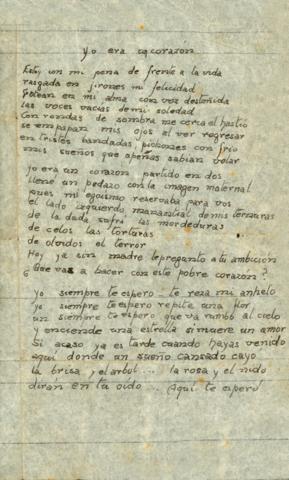 Yo era un corazón
Estoy con mi pena de frente a la vida
rasgada en jirones mi felicidad
Gotean en mi alma con voz desteñida
las voces vacías de mi soledad
Con rondas de sombra me cerca el hastío
se empapan mis ojos al ver regresar
en tristes bandadas, pichones con frío
mis sueños que apenas sabían volar
yo era un corazón partido en dos
llené un pedazo con la imagen maternal
pues mi egoismo reservaba para vos
el lado izquierdo, manantial de mis ternuras
de la duda sufrí las mordeduras
de celos las torturas
de olvidos el terror
Hoy ya sin madre te pregunto a tu ambición
¿Que vas a hacer con este pobre corazón?
yo siempre te espero te reza mi anhelo
yo siempre te espero repite una flor
un siempre te espero que va rumbo al cielo
y enciende una estrella si muere un amor
Si acaso ya es tarde cuando hayas venido
aquí donde un sueño cansado cayó
la brisa y el arbol... la rosa y el nido
dirán en tu oído... Aquí te esperó